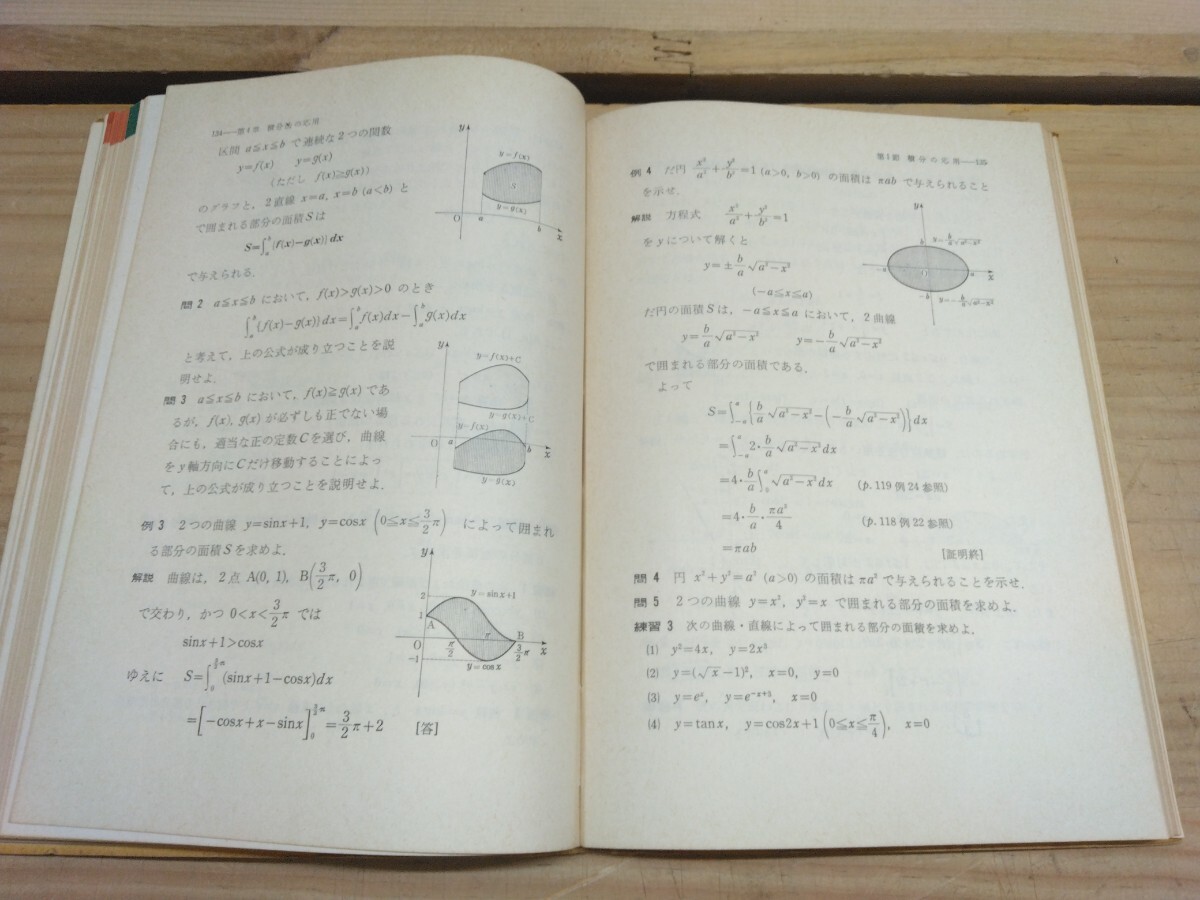 134——第4章 積分法の応用
区間 a≦x≦b で連続な2つの関数
y=f(x)　y=g(x)
(ただし f(x)≧g(x))
のグラフと，2直線 x=a, x=b (a<b) と
で囲まれる部分の面積Sは
S=∫_a^b {f(x)−g(x)}dx
で与えられる．
y
y=f(x)
S
y=g(x)
O
a
b
x
問2 a≦x≦b において，f(x)>g(x)>0 のとき
∫_a^b {f(x)−g(x)}dx=∫_a^b f(x)dx−∫_a^b g(x)dx
と考えて，上の公式が成り立つことを説
明せよ．
問3 a≦x≦b において，f(x)≧g(x) であ
るが，f(x), g(x) が必ずしも正でない場
合にも，適当な正の定数Cを選び，曲線
をy軸方向にCだけ移動することによっ
て，上の公式が成り立つことを説明せよ．
y
y=f(x)+C
y=g(x)+C
y=f(x)
O
a
b
x
y=g(x)
例3 2つの曲線 y=sinx+1, y=cosx (0≦x≦3/2 π) によって囲まれ
る部分の面積Sを求めよ．
解説 曲線は，2点 A(0, 1), B(3/2 π, 0)
で交わり，かつ 0<x<3/2 π では
sinx+1>cosx
ゆえに S=∫_0^{3/2 π} (sinx+1−cosx)dx
=[−cosx+x−sinx]_0^{3/2 π}=3/2 π+2 [答]
y
2
y=sinx+1
1
A
O
π/2
π
B
3/2 π
x
−1
y=cosx
第1節 積分の応用——135
例4 だ円 x²/a²+y²/b²=1 (a>0, b>0) の面積は πab で与えられること
を示せ．
解説 方程式 x²/a²+y²/b²=1
をyについて解くと
y=±b/a √(a²−x²)
(−a≦x≦a)
だ円の面積Sは，−a≦x≦a において，2曲線
y=b/a √(a²−x²)　y=−b/a √(a²−x²)
で囲まれる部分の面積である．
よって
y
b
y=b/a √(a²−x²)
−a
O
a
x
−b
y=−b/a √(a²−x²)
S=∫_{−a}^a {b/a √(a²−x²)−(−b/a √(a²−x²))}dx
=∫_{−a}^a 2·b/a √(a²−x²)dx
=4·b/a ∫_0^a √(a²−x²)dx (p.119 例24参照)
=4·b/a·πa²/4 (p.118 例22参照)
=πab [証明終]
問4 円 x²+y²=a² (a>0) の面積は πa² で与えられることを示せ．
問5 2つの曲線 y=x², y²=x で囲まれる部分の面積を求めよ．
練習3 次の曲線・直線によって囲まれる部分の面積を求めよ．
(1) y²=4x, y=2x³
(2) y=(√x−1)², x=0, y=0
(3) y=eˣ, y=e^{−x+3}, x=0
(4) y=tanx, y=cos2x+1 (0≦x≦π/4), x=0